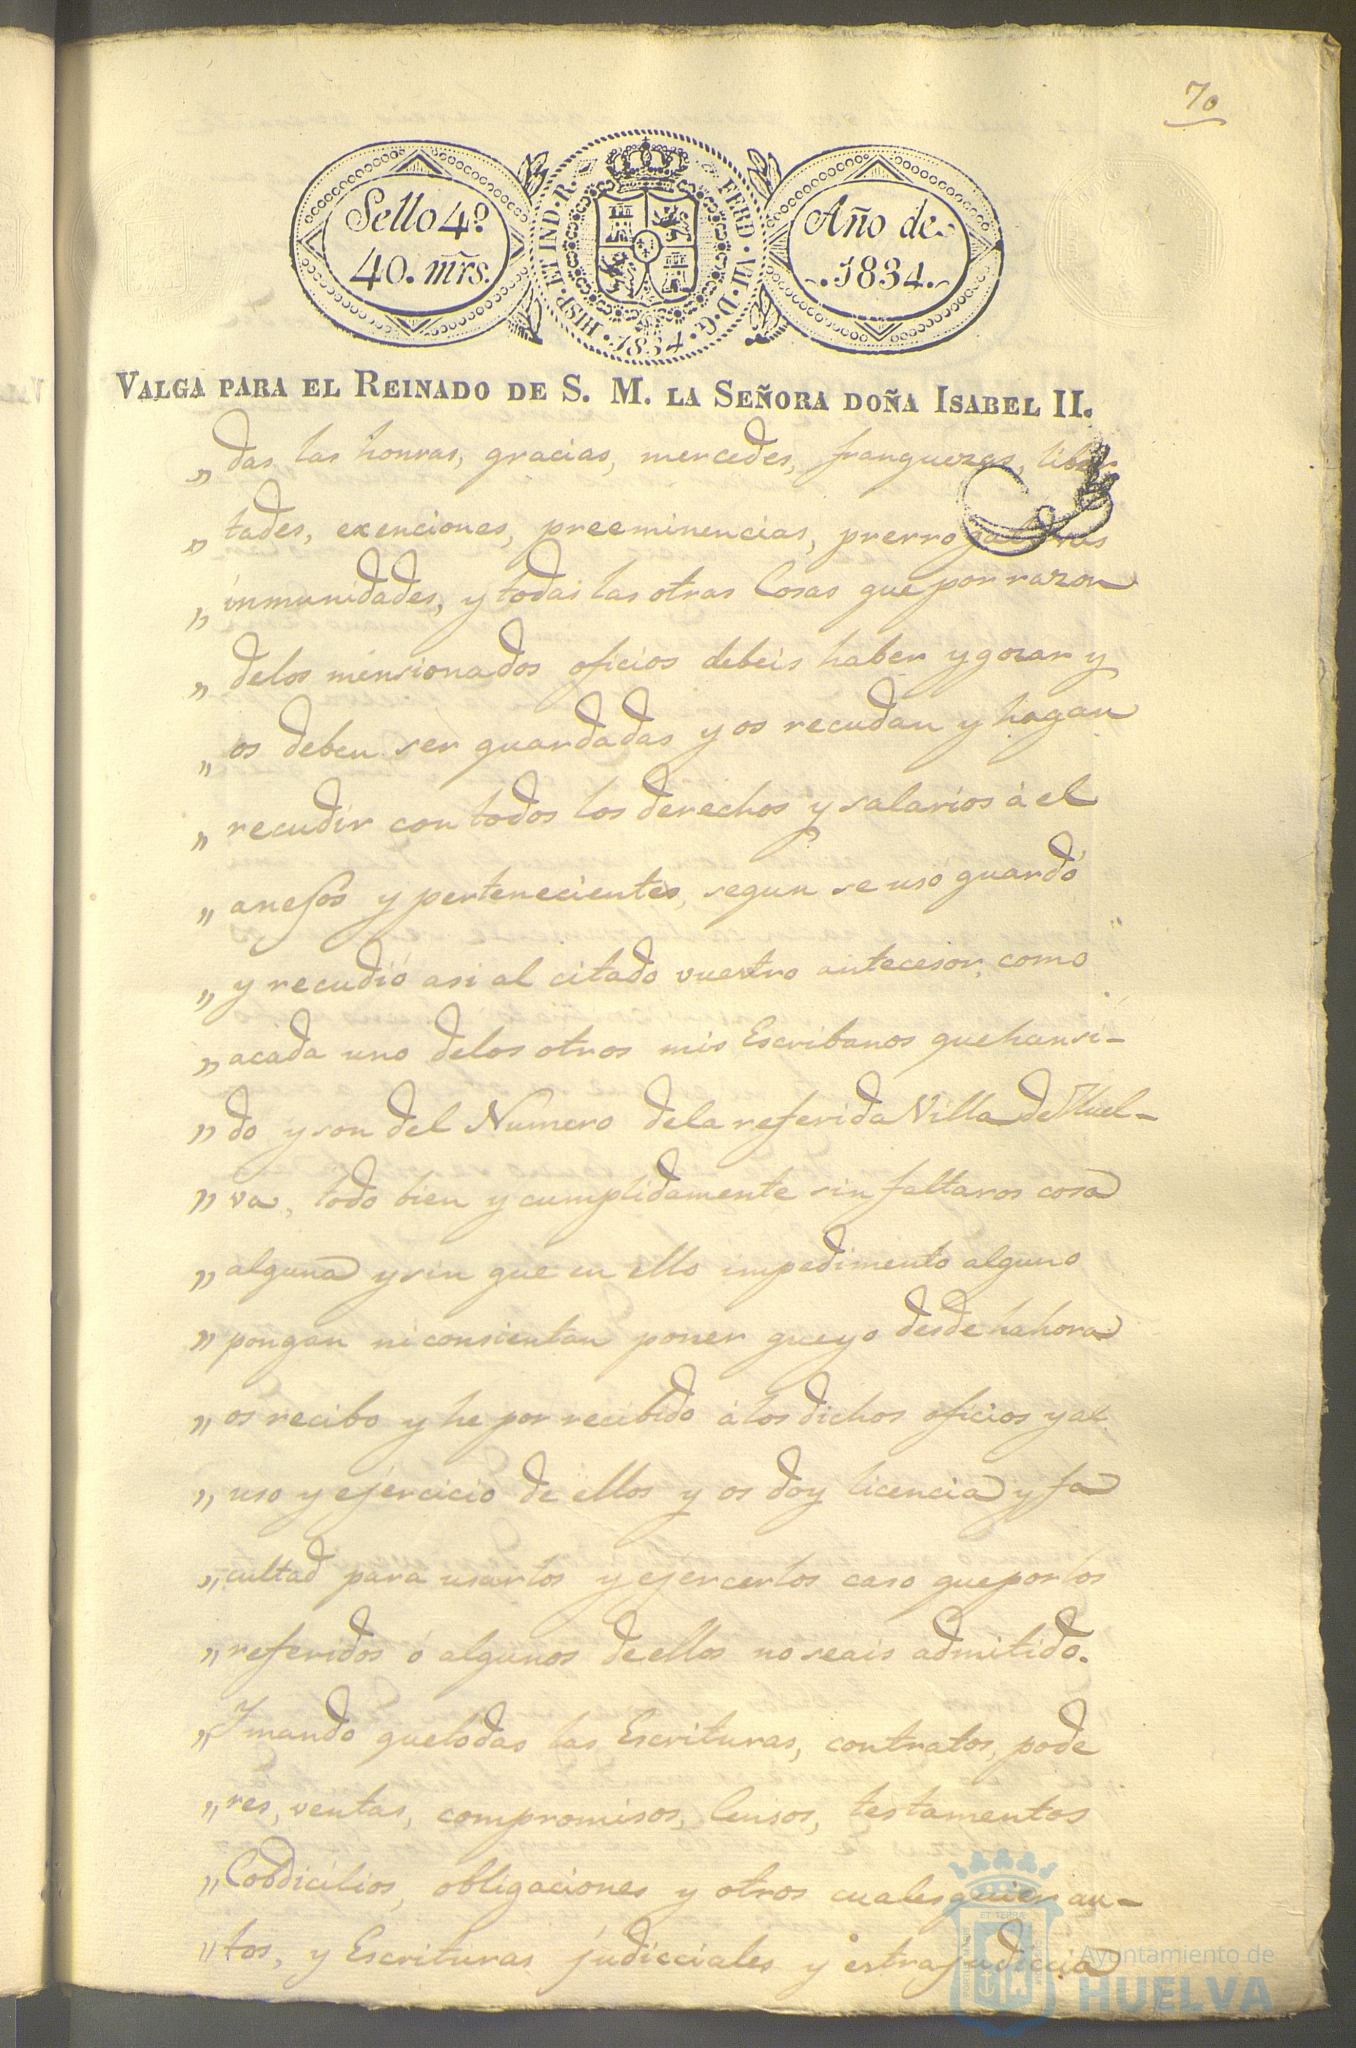 70
Sello 4º
40. mrs.
HISP. ET IND. R.
FERD. VII. D. G.
. 1834 .
Año de
. 1834 .
VALGA PARA EL REINADO DE S. M. LA SEÑORA DOÑA ISABEL II.
„ das las honrras, gracias, mercedes, franquezas, liber
„ tades, exenciones, preeminencias, prerrogativas
„ inmunidades, y todas las otras Cosas que por razon
„ delos mensionados oficios debeis haber y gozar y
„ os deben ser guardadas y os recudan y hagan
„ recudir con todos los derechos y salarios á el
„ anesos y pertenecientes, segun se usó guardó
„ y recudió asi al citado vuestro antecesor, como
„ acada uno delos otros mis Escribanos que han si-
„ do y son del Numero dela referida Villa de Huel-
„ va, todo bien y cumplidamente sin faltaros cosa
„ alguna y sin que en ello impedimento alguno
„ pongan ni consientan poner que yo desde hahora
„ os recibo y he por recibido á los dichos oficios y al
„ uso y ejercicio de ellos y os doy licencia y fa
„ cultad para usarlos y ejercerlos caso que por los
„ referidos ó algunos de ellos no seais admitido.
„ Y mando que todas las Escrituras, contratos, pode
„ res, ventas, compromisos, Censos, testamentos
„ Cobdicilios, obligaciones y otros cualesquier au-
„ tos, y Escrituras judicciales y estrajudiccia
Ayuntamiento de
HUELVA